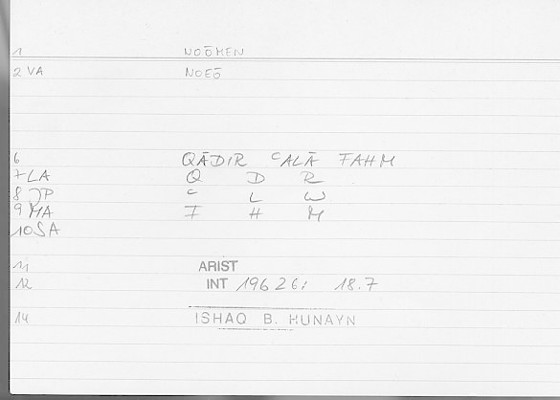 1 NOŌMEN
2 VA NOEŌ
6 QĀDIR ʿALĀ FAHM
7 LA Q D R
8 JP ʿ L W
9 MA F H M
10 SA
11 ARIST
12 INT 196 26; 18.7
14 ISHAQ B. HUNAYN